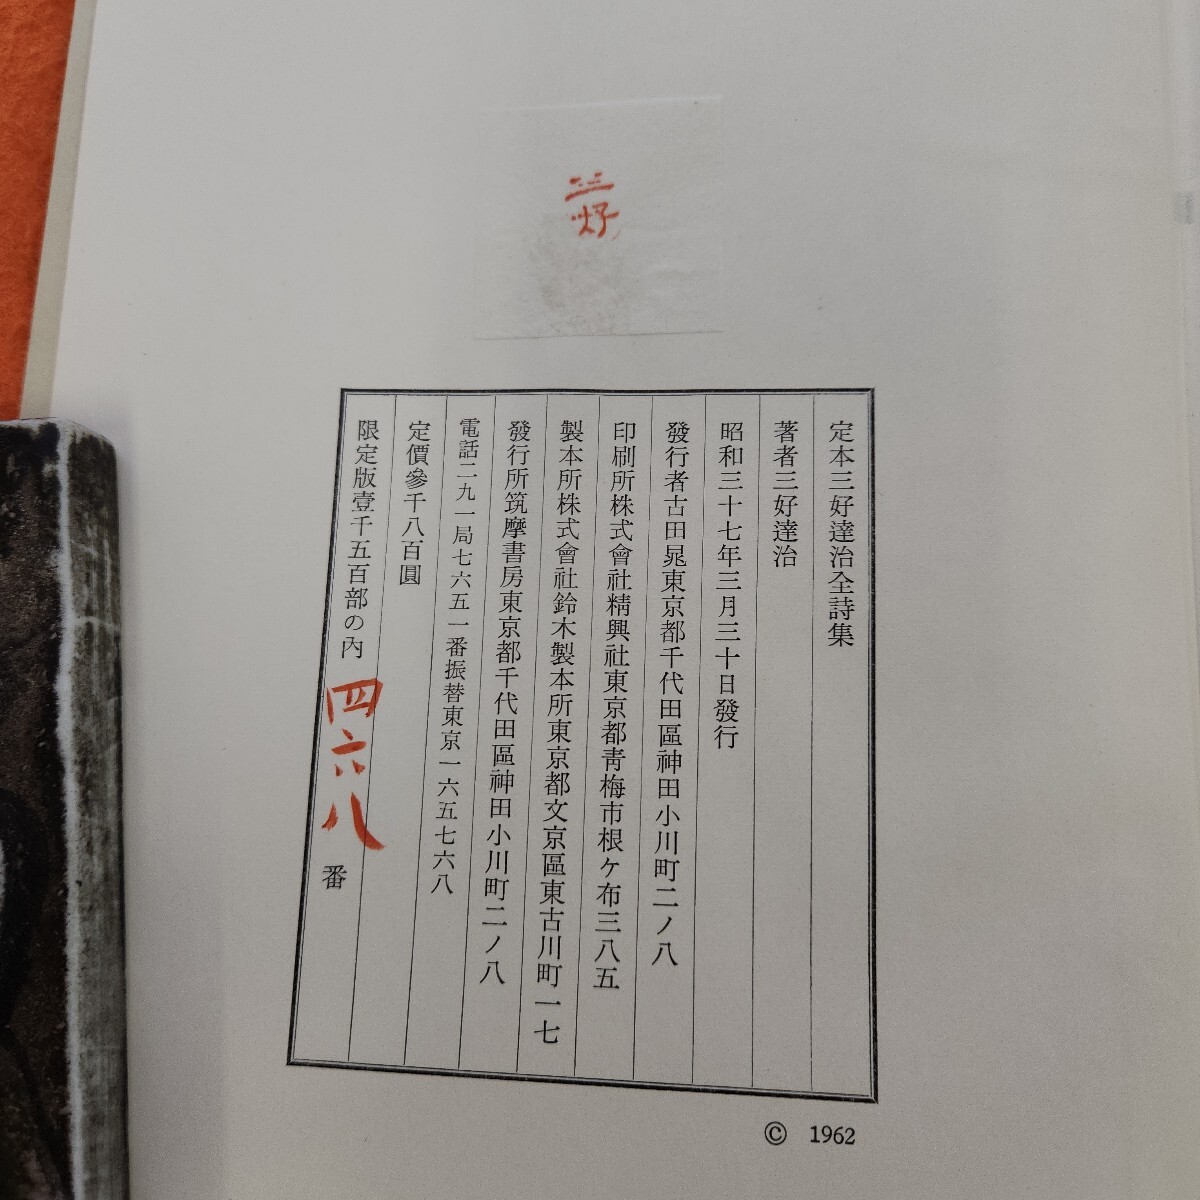 三好
定本三好達治全詩集
著者三好達治
昭和三十七年三月三十日發行
發行者古田晁東京都千代田區神田小川町二ノ八
印刷所株式會社精興社東京都靑梅市根ケ布三八五
製本所株式會社鈴木製本所東京都文京區東古川町一七
發行所筑摩書房東京都千代田區神田小川町二ノ八
電話二九一局七六五一番振替東京一六五七六八
定價參千八百圓
限定版壹千五百部の內 四六八 番
© 1962